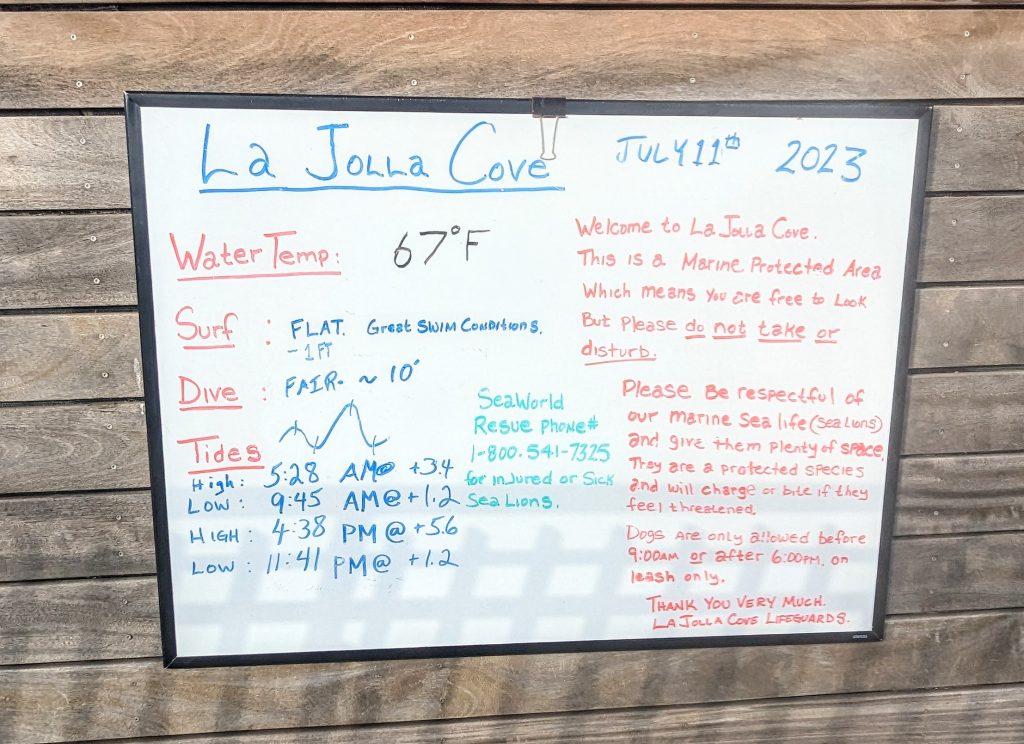 La Jolla Cove
JULY 11th 2023
Water Temp: 67°F
Surf : FLAT. Great SWIM CONDITIONS.
- 1 FT
Dive : FAIR- ~ 10'
Tides
High: 5:28 AM@ +3.4
LOW: 9:45 AM@ +1.2
HIGH: 4:38 PM @ +5.6
LOW: 11:41 PM@ +1.2
SeaWorld
Resue Phone#
1-800-541-7325
for injured or Sick
Sea Lions.
Welcome to La Jolla Cove.
This is a Marine Protected Area
Which means You are free to Look
But Please do not take or
disturb.
Please Be respectful of
our marine Sea life (Sea Lions)
and give them plenty of space.
They are a protected species
and will charge or bite if they
feel threatened.
Dogs are only allowed before
9:00AM or after 6:00PM. on
leash only.
THANK YOU VERY MUCH.
LA JOLLA COVE LIFEGUARDS.